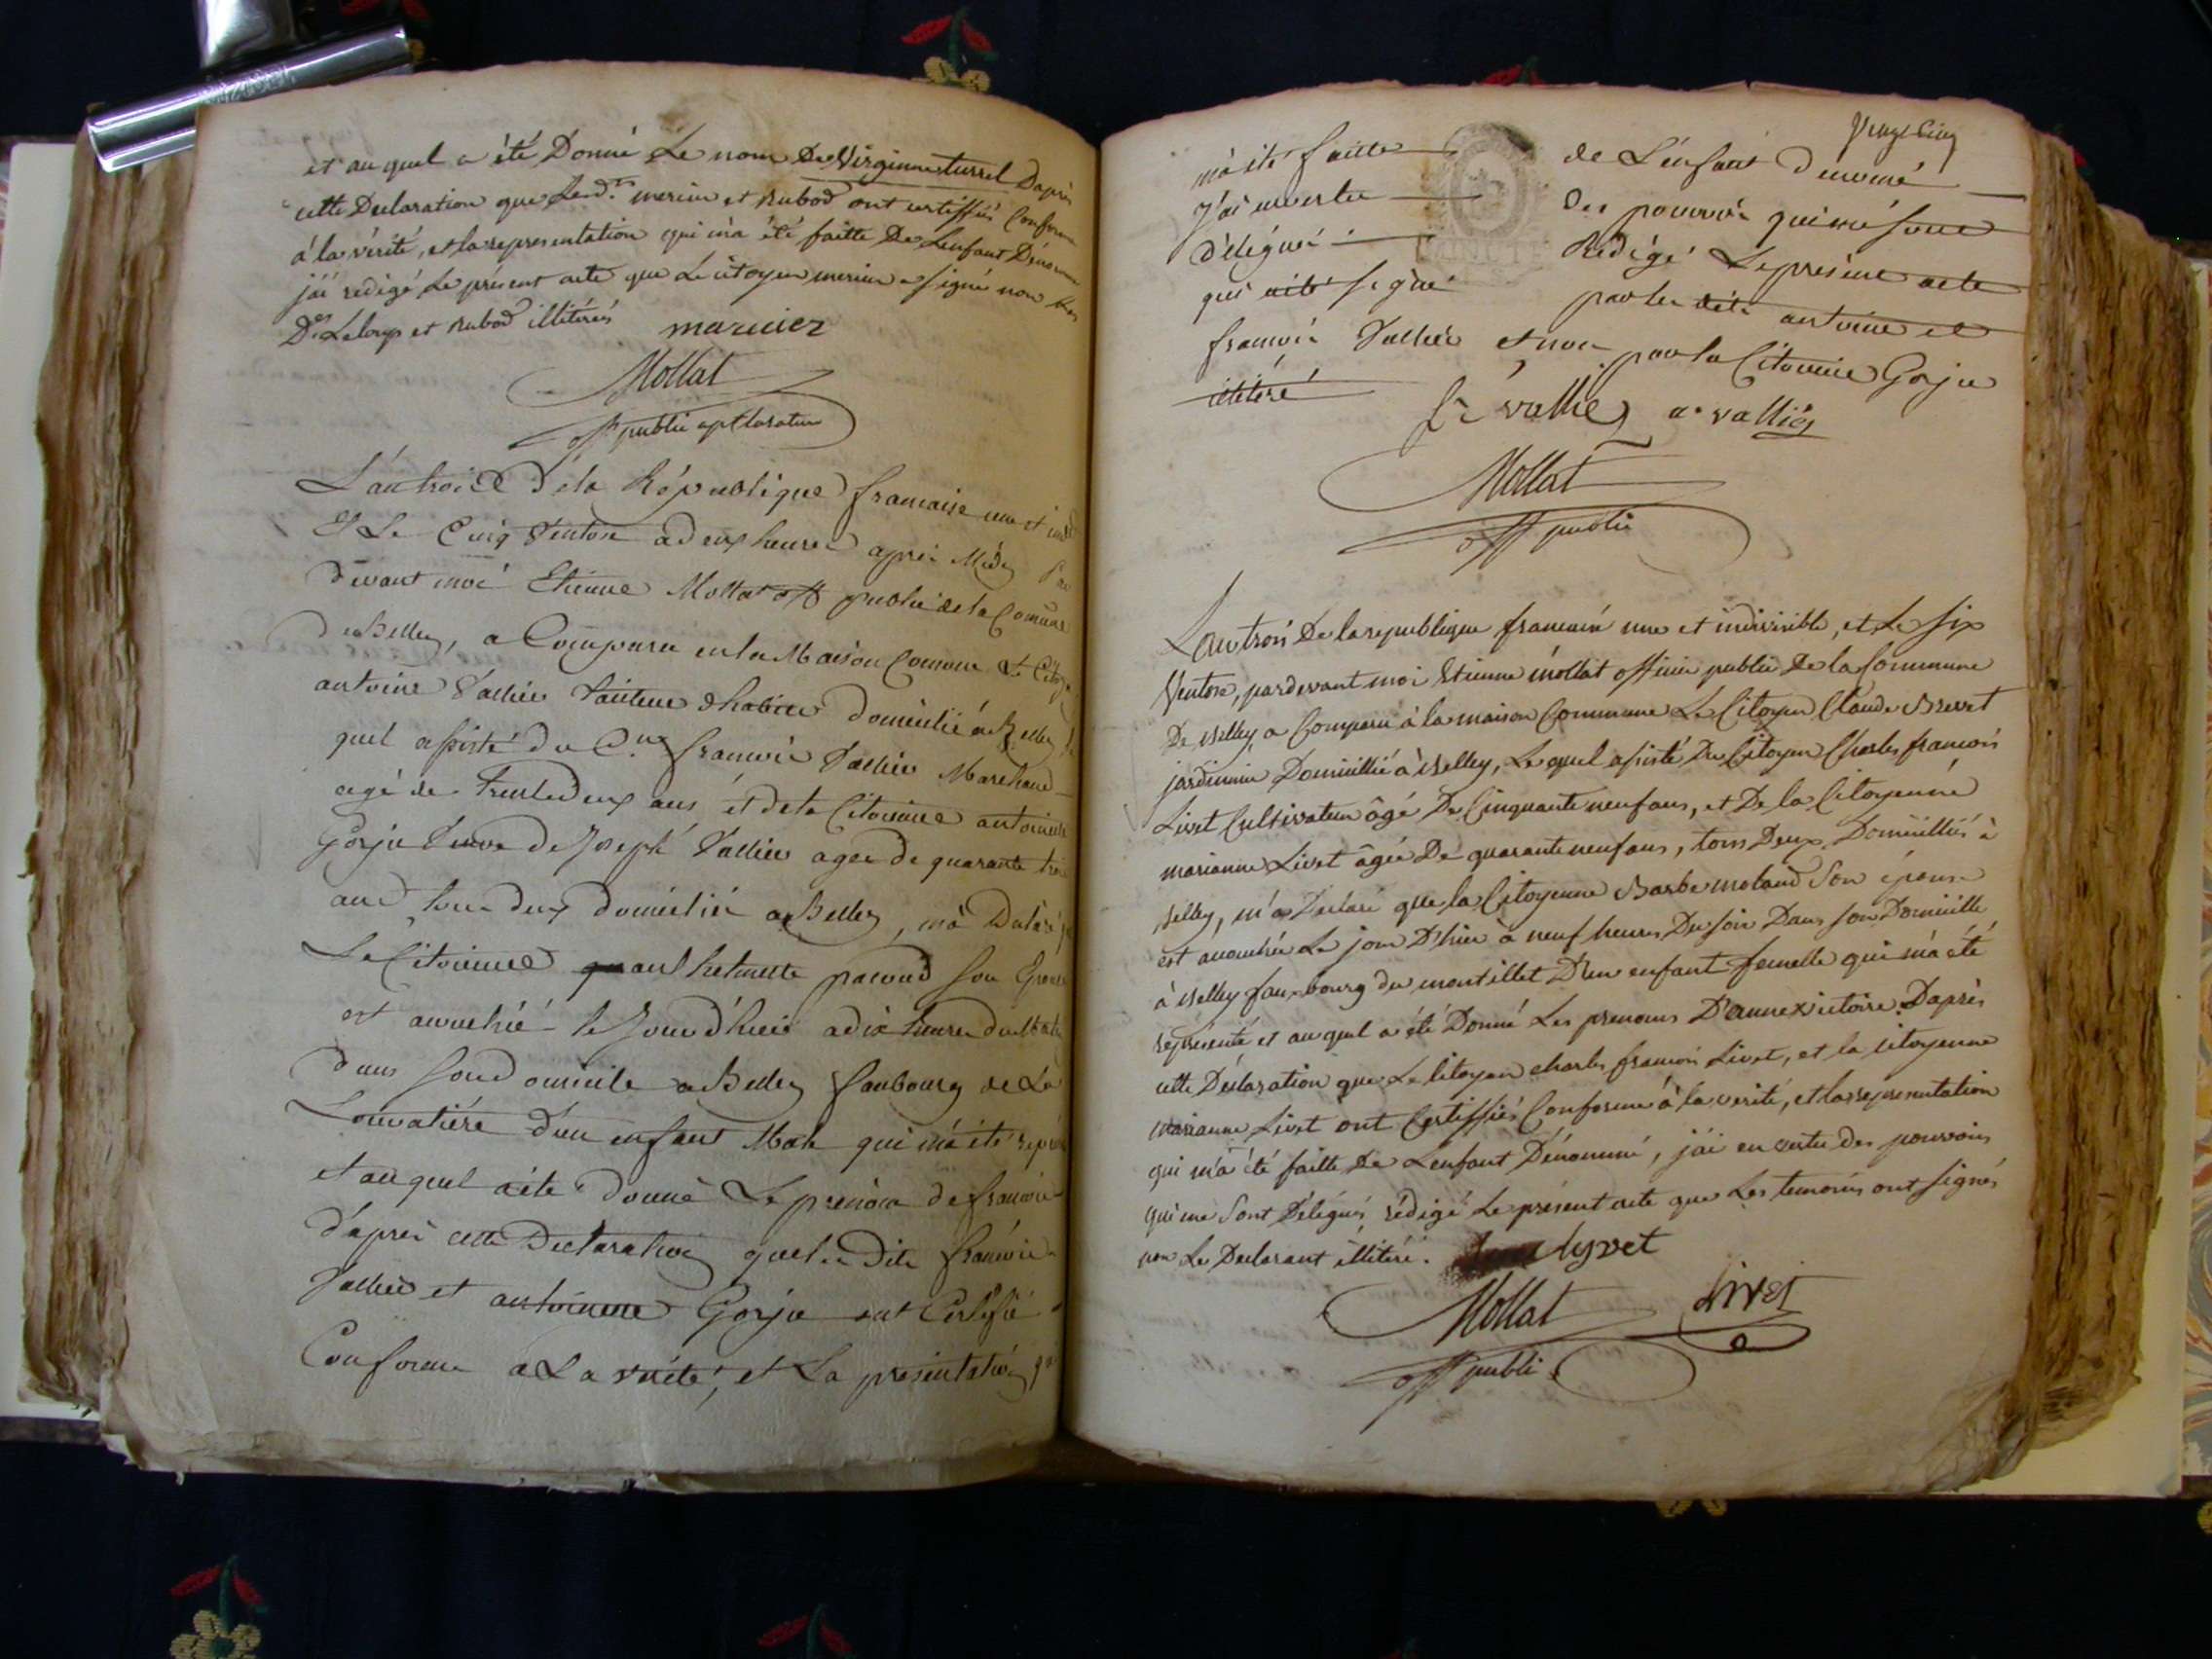 et auquel a été Donné Le nom De Virginie turrel Daprès
cette Declaration que Lesd.ts mercier et Rubod ont certiffiés Conforme
à la vérité, et la representation qui m'a été faitte De Lenfant Dénommé
j'ai redigé Le présent acte que Le citoyen mercier a signé non
De Leloup et Rubod illitérés marcier
Mollat
off public
L'an trois de la République francaise une et ind
Et Le Cinq Ventose a deux heures apres Midy Par
devant moi Etienne Mollat off public de la Comune
de Belley, a Comparu en la Maison Comune Le Citoy
antoine Vallier tailleur d'habits domicilié a Belley Le
quel assisté du C.en francois Vallier Marchand
agé de trente deux ans et de la Citoienne antoinette
Gorju Veuve de Joseph Vallier agée de quarante trois
ans tous deux domiciliés a Belley, m'a Déclaré
La Citoienne anthelmette pacoud son Epouse
est accouchée le Jour d'hier a dix heures du Matin
dans son domicile a Belley faubourg de La
Louvatière d'un enfant Male qui m'a été repré
et auquel a été donné Le prénom de francois
d'après cette Declaration que les dits francois
Vallier et antoinette Gorju ont Certifié
Conforme a La vérité, et La présentation qui
Vingt Cinq
m'a été faitte de L'enfant denomé
J'ai en vertu des pouvoirs qui me sont
délégués Rédigé Le présent acte
qui a été signé par les dits antoine et
francois Vallier et non par la Citoienne Gorju
illitéré
fr vallier a. vallier
Mollat
off public
L'an trois De la republique francaise une et indivisible, et Le six
Ventose, pardevant moi Etienne mollat officier public De la Commune
De Belley, a Comparu à la maison Commune Le Citoyen Claude Brevet
jardinier Domicillié à Belley, Lequel assisté Du Citoyen Charles francois
Livet Cultivateur âgé De Cinquante neuf ans, et De la Citoyenne
marianne Livet âgée De quarante neuf ans, tous Deux Domicilliés à
Belley, m'a Déclaré que la Citoyenne Barbe molard Son épouse
est accouchée Le jour D'hier à neuf heures Du soir Dans son Domicille
à Belley faux-bourg du montillet D'un enfant femelle qui m'a été
représenté et auquel a été Donné Les prenoms D'anne victoire. Daprès
cette Déclaration que Le Citoyen charles francois Livet, et la citoyenne
marianne Livet ont Certiffiés Conforme à la verité, et la representation
qui m'a été faitte De Lenfant Dénommé, j'ai en vertu des pouvoirs
qui me sont Délégués rédigé Le présent acte que Les temoins ont signés
non Le Declarant illitéré. lyvet
Mollat Livet
off public